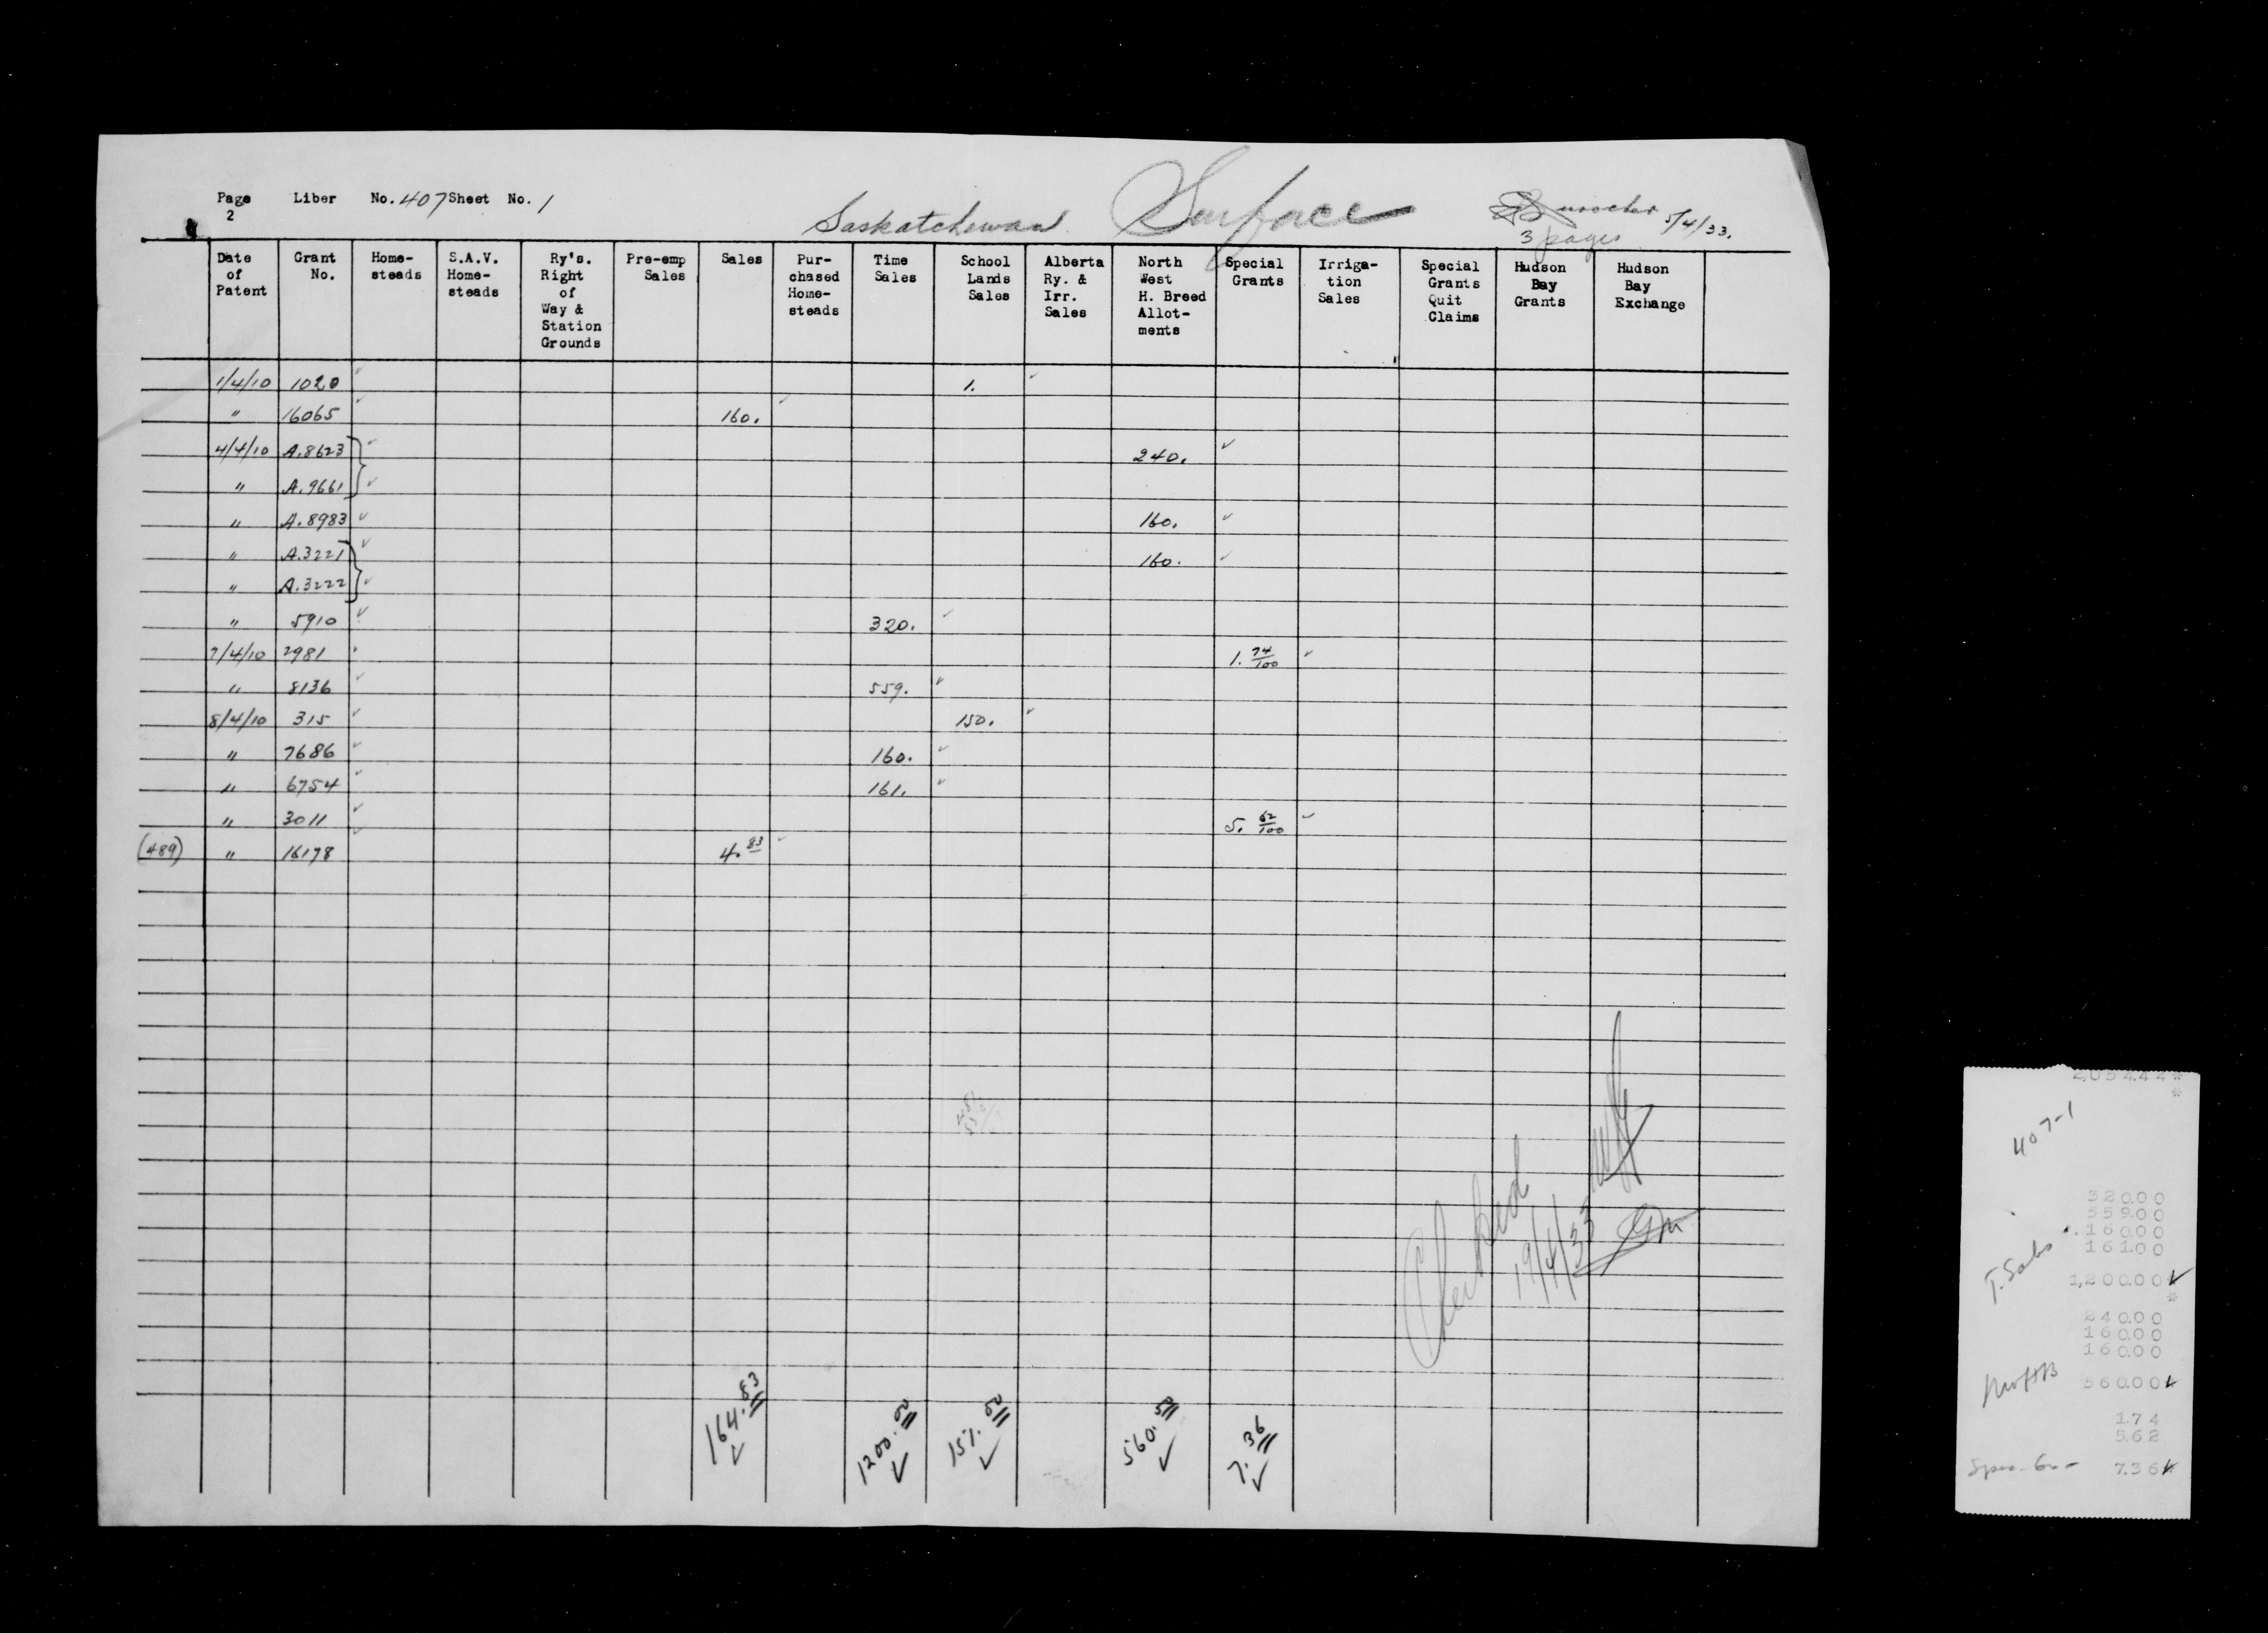 Page 2 Liber No. 407 Sheet No. 1
Saskatchewan Surface
5/4/33.
3 pages
Date of Patent | Grant No. | Home-steads | S.A.V. Home-steads | Ry's. Right of Way & Station Grounds | Pre-emp Sales | Sales | Pur-chased Home-steads | Time Sales | School Lands Sales | Alberta Ry. & Irr. Sales | North West H. Breed Allot-ments | Special Grants | Irriga-tion Sales | Special Grants Quit Claims | Hudson Bay Grants | Hudson Bay Exchange
1/4/10 1020 ✓ 1. ✓
" 16065 ✓ 160. ✓
4/4/10 A.8623 ✓ 240. ✓
" A.9661 ✓
" A.8983 ✓ 160. ✓
" A.3221 ✓ 160. ✓
" A.3222 ✓
" 5910 ✓ 320. ✓
7/4/10 2981 ✓ 1. 74/100 ✓
" 8136 ✓ 559. ✓
8/4/10 315 ✓ 150. ✓
" 7686 ✓ 160. ✓
" 6754 ✓ 161. ✓
" 3011 ✓ 5. 62/100 ✓
(489) " 16178 ✓ 4.83 ✓
Checked
19/4/33
164.83 ✓ 1200.00 ✓ 151.00 ✓ 560.00 ✓ 7.36 ✓
407-1
320.00
559.00
160.00
161.00
T. Sales
1,200.00 ✓
*
240.00
160.00
160.00
560.00 ✓
1.74
5.62
7.36 ✓